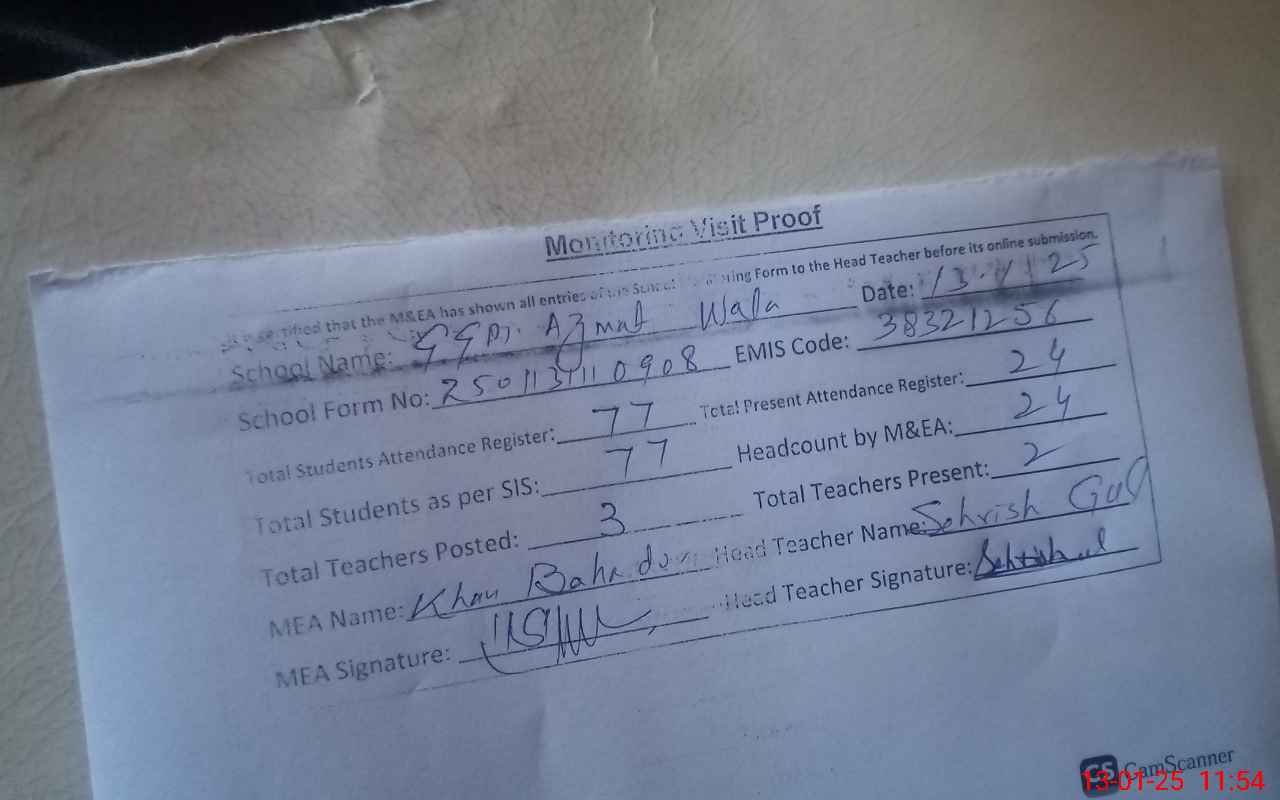 Monitoring Visit Proof
It is certified that the M&EA has shown all entries of the School Monitoring Form to the Head Teacher before its online submission.
School Name: GGPS. Azmat Wala Date: 13-1-25
School Form No: 250113110908 EMIS Code: 38321256
Total Students Attendance Register: 77 Total Present Attendance Register: 24
Total Students as per SIS: 77 Headcount by M&EA: 24
Total Teachers Posted: 3 Total Teachers Present: 2
MEA Name: Khan Bahadur Head Teacher Name: Sehrish Gul
MEA Signature: Head Teacher Signature:
CS CamScanner
13-01-25 11:54